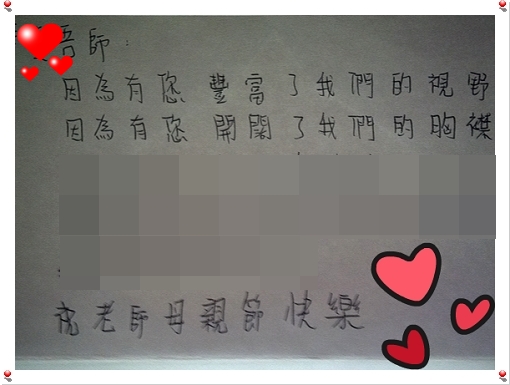 師:
因為有您 豐富了我們的視野
因為有您 開闊了我們的胸襟
祝老師母親節快樂